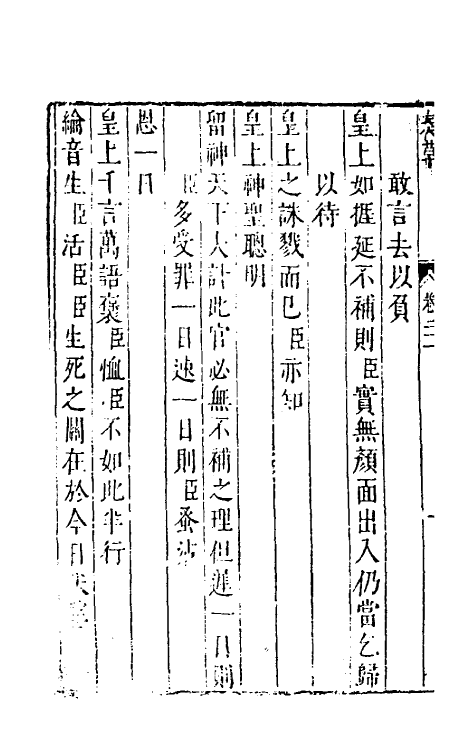 卷三
敢言去以負
皇上如挨延不補則臣實無顏面出入仍當乞歸
以待
皇上之誅戮而已臣亦知
皇上神聖聰明
留神天下大計此官必無不補之理但遲一日則
臣多受罪一日速一日則臣蚤沾
恩一日
皇上千言萬語褒臣恤臣不如此半行
綸音生臣活臣臣生死之關在於今日